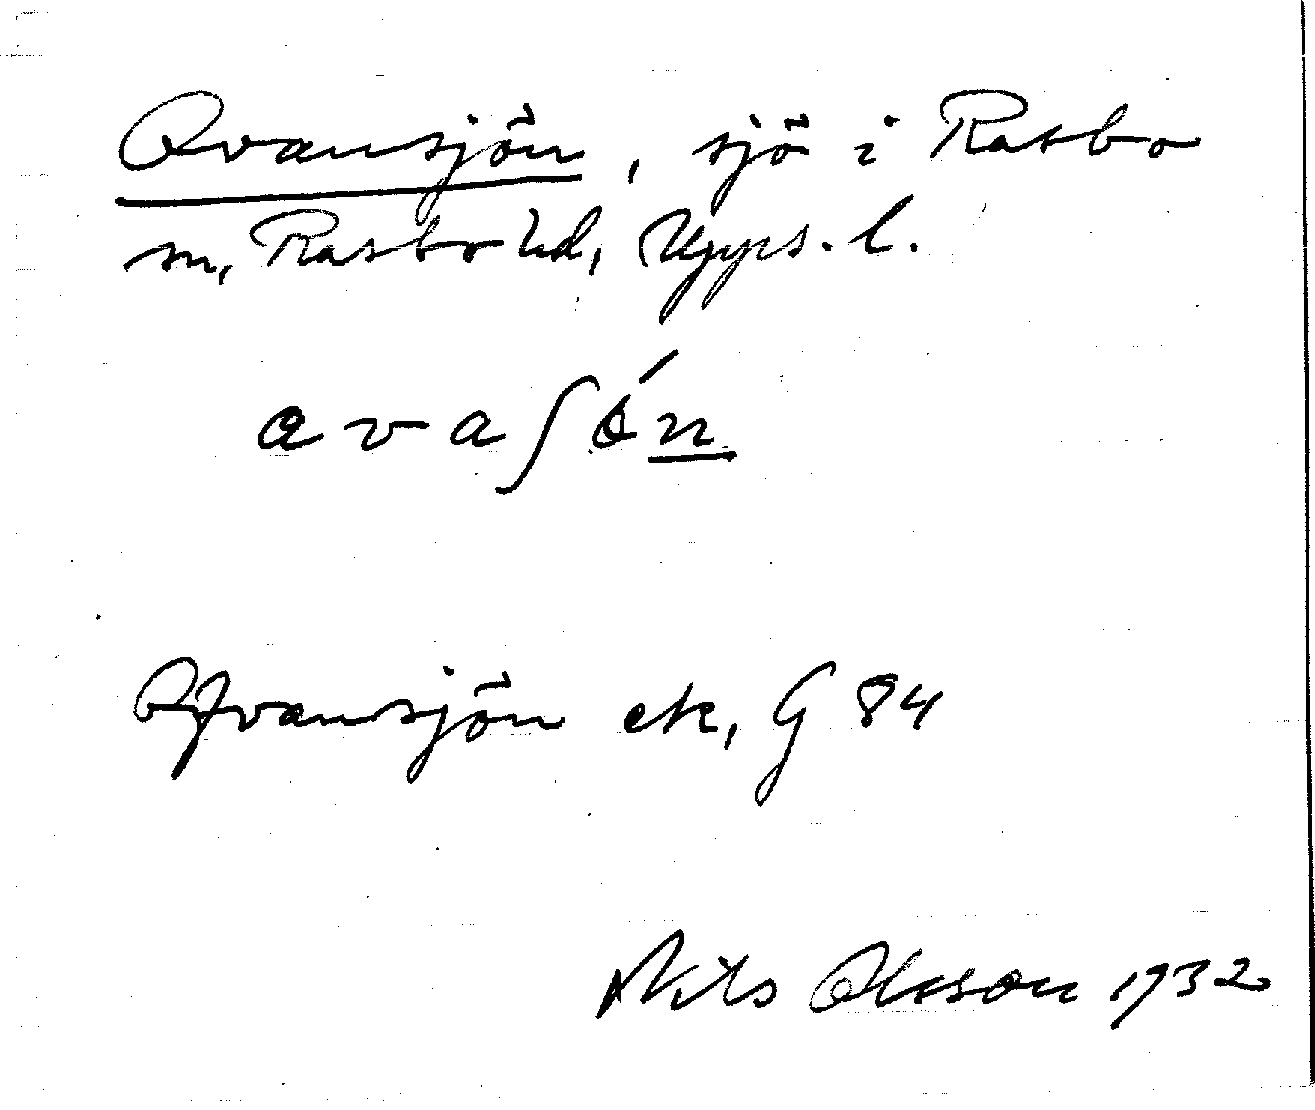 Ovansjön, sjö i Rasbo
sn, Rasbo hd, Upps. l.
ovaʃön
Ofvansjön ek, G 84
Nils Olsson 1932